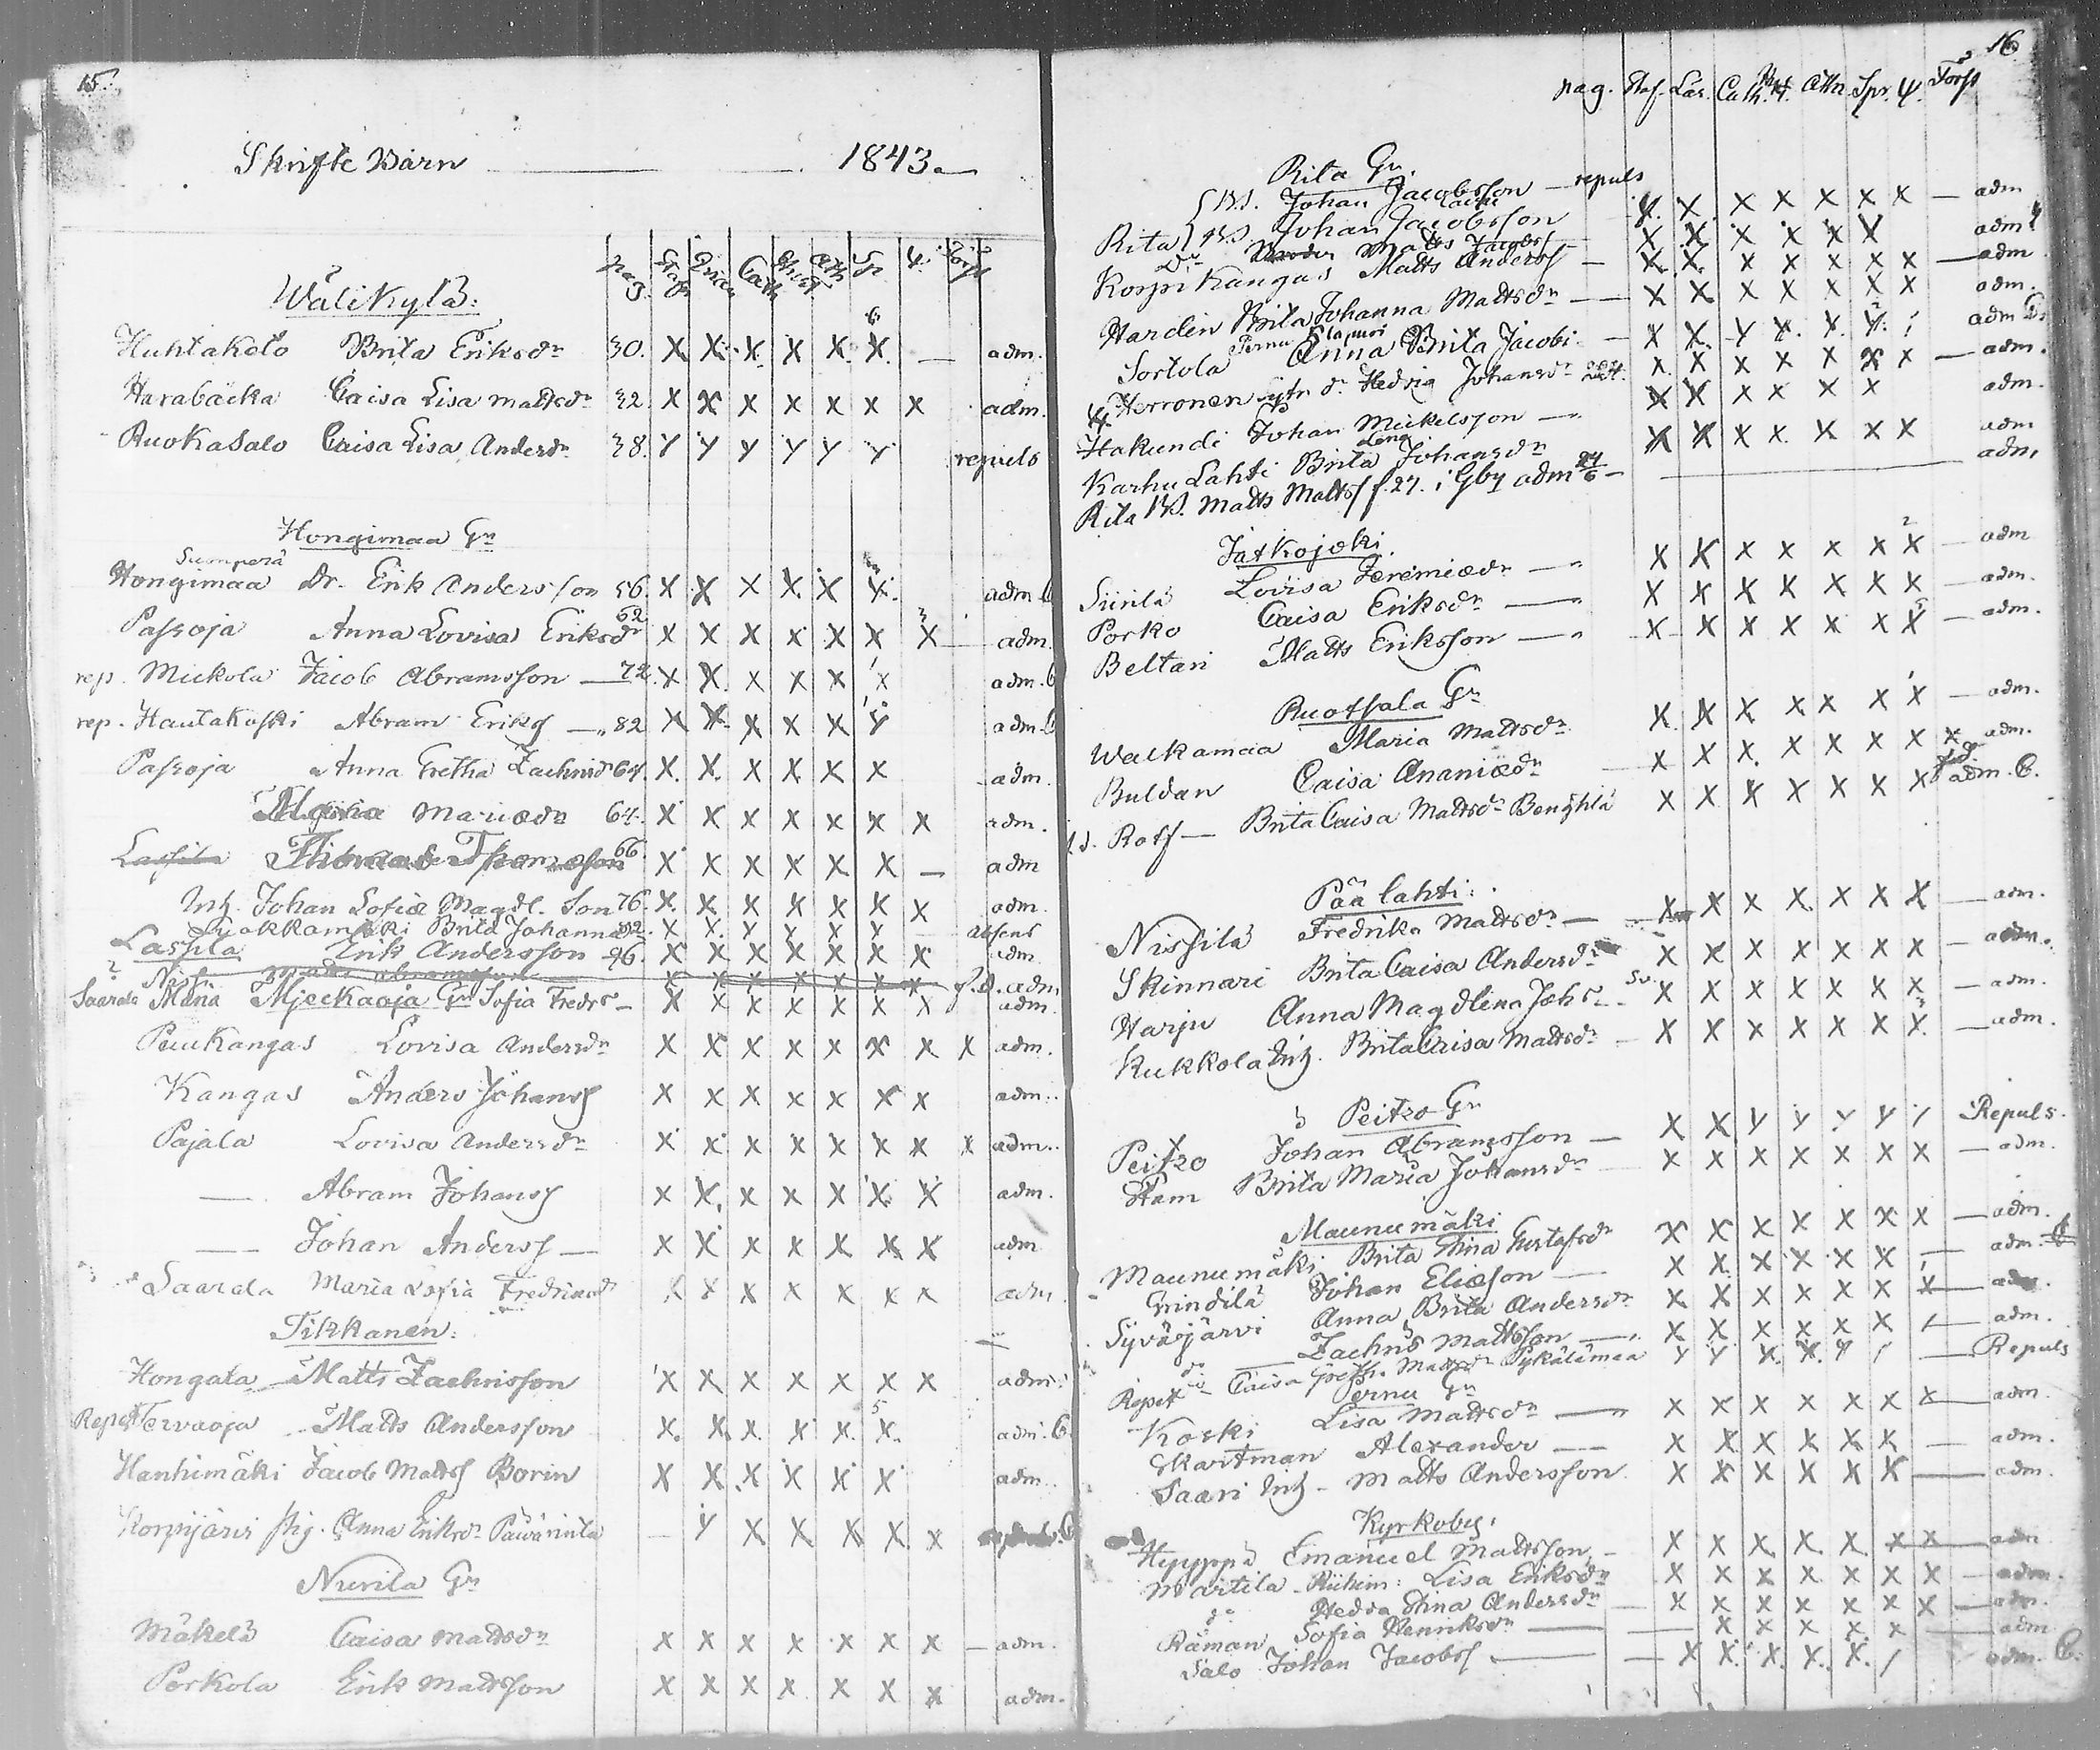 15.
Skrifte Barn — 1843 —
pag. Staf Cath Sp 4. Förs
Wälikylä:
6
Huhtakoto Brita Ersdr 30. X X X X X X — adm.
Harabäcka Caisa Lisa Mattsdr 32 X X X X X X X adm.
Ruokasalo Caisa Lisa Andersdr 38. Y Y Y Y Y Y repuls
Hongimaa Gn
Sumperä
Hongimaa Dr. Erik Andersson 56. X X X X X X. adm
Passoja Anna Lovisa Eriksdr 62 X X X X X X X — adm.
rep. Mickola Jacob Abramsson — 72. X X X X X X adm.
rep. Hautakoski Abram Eriks — 82 X X X X X Y adm.
Passoja Anna Gretha Zachrisd 64. X X X X X X adm.
Maria Mariædr 64. X X X X X X X adm.
Lassila Thomas Thomasson 66. X X X X X X — adm
Inh. Johan Sofiæ Magdl. Son 76. X X X X X X X adm.
Brita Johanna 92. X X Y Y Y Y — absens
Lassila Erik Andersson 96. X X X X X X X adm
Matts Abramsson X X X X X X X f.d. adm
Saarela Maria Mjeckaoja Gn Sofia Fredrs — X X X X X X X adm.
Puukangas Lovisa Andersdr X X X X X X X X adm.
Kangas Anders Johanss X X X X X X X adm.
Pajala Lovisa Andersdr X X X X X X X X adm.
— Abram Johanss X X X X X X X adm.
— Johan Anderss — X X X X X X X adm
Saarela Maria Sofia Fredriksdr X X X X X X X adm.
Tikkanen:
Hongala — Matts Zachrisson X X X X X X X adm.
5
Repet Tervaoja Matts Andersson X. X. X. X X. X. adm.
Hanhimäki Jacob Matts Borin X X X X X X adm.
Korpijärvi pig. Anna Eriksdr Päivärinta — Y X X X X X
Nurila Gn
Mäkelä Caisa Mattsdr X X X X X X X — adm.
Perkola Erik Mattsson X X X X X X X adm.
16
pag. Staf. Läs. Cath. Htt. Athn Spr. 4. Förs
Rita Gn.
Rita B.S. Johan Jacobsson — repuls X. X X X X X X — adm
B.S. Johan Jacobsson X X X X X X adm
Dr Matts Jacobs
Korpikangas Matts Anderss — X X X X X X X — adm
Hardin Brita Johanna Mattsdr — X X X X X X X adm.
Pernu
Sortola Anna Brita Jacobi — X X. Y X. X. Y. / adm
Herronen Hedvig Johansdr X X X X X X X — adm.
Hakundi Johan Mickelsson — X X X X X X adm.
Lena
Karhulahti Brita Johansdr X X X X X X X adm
Rita B.S. Matts Matts f. 27. i Gby adm 24/6 — adm.
Jatkojoki.
Siirilä Lovisa Jeremiædr — X X X X X X X — adm
Porko Caisa Eriksdr — X X X X X X X — adm.
Beltari Matts Eriksson — X X X X X X X — adm.
Ruotsala Gn
Walkamaa Maria Mattsdr X X X X X X X — adm.
Buldan Caisa Ananiædr X X X. X X X X X adm.
Brita Caisa Mattsdr X X X X X X X adm.
Päälahti:
Nissilä Fredrika Mattsdr — X X X X X X X — adm.
Skinnari Brita Caisa Andersdr X X X X X X X — adm.
Harju Anna Magdlena Johs X X X X X X X — adm.
Kukkola Inh. Brita Caisa Mattsdr X X X X X X X — adm.
Peitzo Gn
Peitzo Johan Abramsson — X X Y Y Y Y / Repuls.
Stam Brita Maria Johansdr X X X X X X X — adm.
Maunumäki
Maunumäki Brita Stina Gustafsdr X X X X X X X — adm.
Grindilä Johan Eliæson — X X X X X X / — adm.
Syväjärvi Anna Brita Andersdr X X X X X X X adm.
do Zachris Mattsson — X X X X X X / — adm.
Repet do Caisa Greth. Mattsdr Pykälämaa Y Y X. X. Y / — Repuls
Pernu Gn
Koski Lisa Mattsdr — X X X X X X X — adm.
Skartman Alexander — X X X X X X — adm.
Saari Inh — Matts Andersson X X X X X X — adm.
Kyrkoby.
Hyyppä Emanuel Mattsson — X X X X X X X — adm
Martila Riihim: Lisa Eriksdr X X X X X X X — adm.
do Hedda Stina Andersdr — X X X X X X X — adm.
Räman Sofia Henriksdr — X X X X X — adm
Salo Johan Jacobs — X X. X. X. X. / adm.